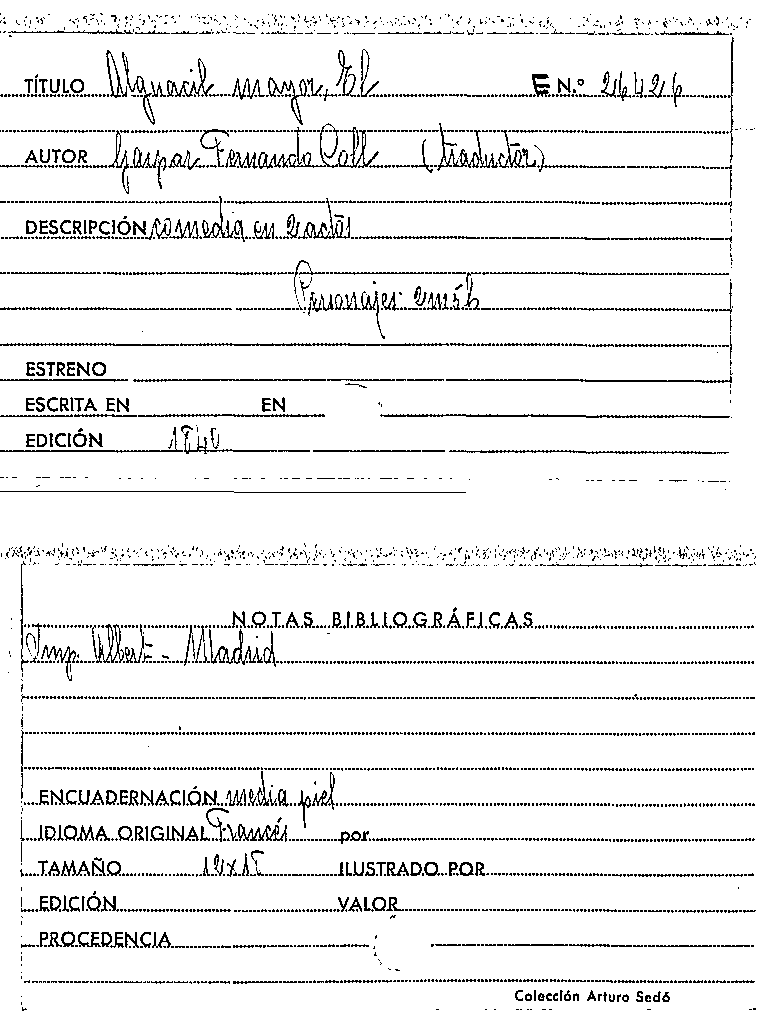 TÍTULO Alguacil mayor, El E N.º 26426
AUTOR Gaspar Fernando Coll (traductor)
DESCRIPCIÓN comedia en 2 actos
Personajes: 2m5h
ESTRENO
ESCRITA EN EN
EDICIÓN 1840
NOTAS BIBLIOGRÁFICAS
Imp. Albert - Madrid
ENCUADERNACIÓN media piel
IDIOMA ORIGINAL Francés por
TAMAÑO ILUSTRADO POR
EDICIÓN VALOR
PROCEDENCIA
Colección Arturo Sedó